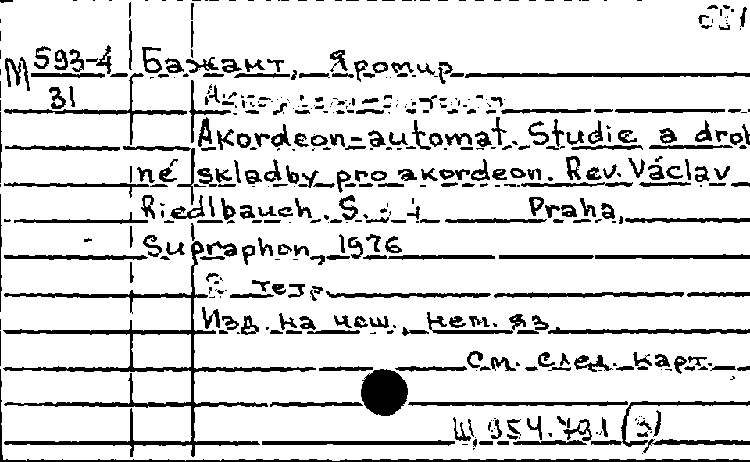 М 593-4 Бажант, Яромир
31
Akordeon-automat. Studie a drob
né skladby pro akordeon. Rev. Václav
Riedlbauch. S. Praha,
Supraphon, 1976
тетр.
Изд. на чеш., нем. яз.
См. след. карт.
Щ 954.791 (3)